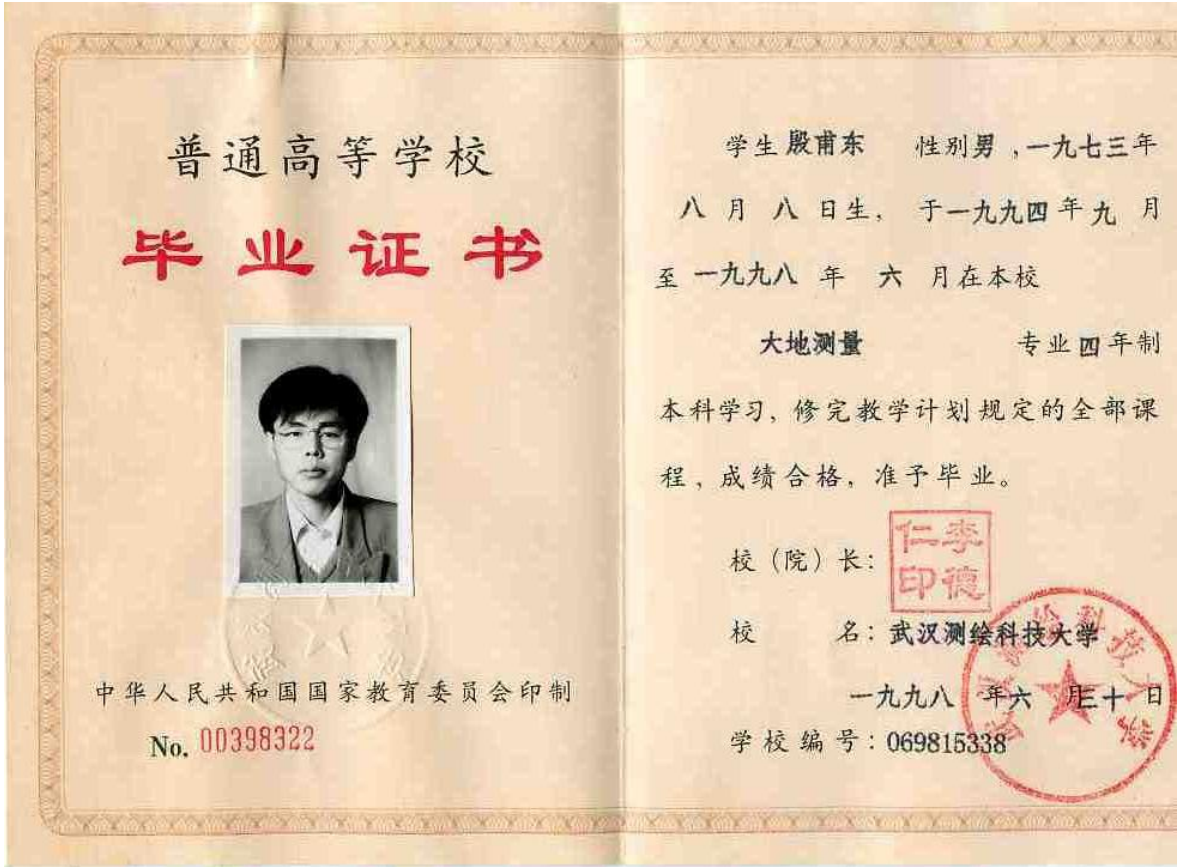 普通高等学校
毕业证书
中华人民共和国国家教育委员会印制
No. 00398322
学生 殷甫东 性别 男 ,一九七三年
八 月 八 日生, 于一九九四年九 月
至 一九九八 年 六 月在本校
大地测量 专业四年制
本科学习, 修完教学计划规定的全部课
程, 成绩合格, 准予毕业。
校(院)长:
李德仁印
校 名: 武汉测绘科技大学
一九九八 年六 月三十日
学校编号: 069815338
武汉测绘科技大学